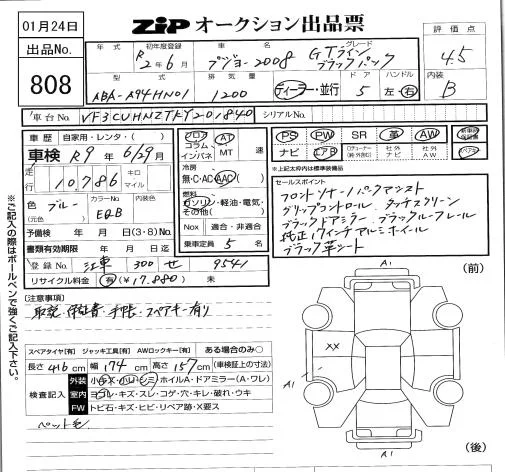 01月24日
ZIP オークション出品票
出品No.
808
年式 初年度登録 車名 グレード
R2年6月 プジョー2008 GTライン ブラックパック
評価点
4.5
型式 排気量 ドア ハンドル
ABA-A94HN01 1200 ディーラー・並行 5 左・右
内装
B
車台No. VF3CUHNZTKY201840 シリアルNo.
車歴 自家用・レンタ・( )
車検 R9年6/29月
走行 10,786 キロ マイル
色 ブルー カラーNo. EQB 内装色
(元色)
予備検 年 月 日(3・8)No.
書類有効期限 年 月 日迄
登録No. 江東 300 せ 9541
リサイクル料金 有(¥17,880) 未
フロア コラム インパネ AT MT 速
冷房 無・C・AC・AAC
燃料 ガソリン・軽油・電気・その他( )
Nox 適合・非適合
乗車定員 5名
PS PW SR 革 AW 新車時保証書
ナビ エアB 社外ナビ 社外AW
★上記太枠内は標準装備品
セールスポイント
フロントソナー・パークアシスト
グリップコントロール タッチスクリーン
ブラックドアミラー ブラックルーフレール
純正17インチアルミホイール
ブラック革シート
(注意事項)
取説・保証書・手帳・スペアキー有り
スペアタイヤ【有】 ジャッキ工具【有】 AWロックキー【有】 ある場合のみ○
長さ 416cm 幅 174cm 高さ 157cm (車検証上の寸法)
検査記入
外装 小キズ・小ヘコミ・ホイルA・ドアミラー(A・ワレ)
室内 ヨゴレ・キズ・スレ・コゲ・穴・キレ・破れ・ウキ
FW トビ石・キズ・ヒビ・リペア跡・X要ス
ペット毛
(前)
A1
XX
A1
A1
(後)
※ご記入の際はボールペンで強くご記入下さい。